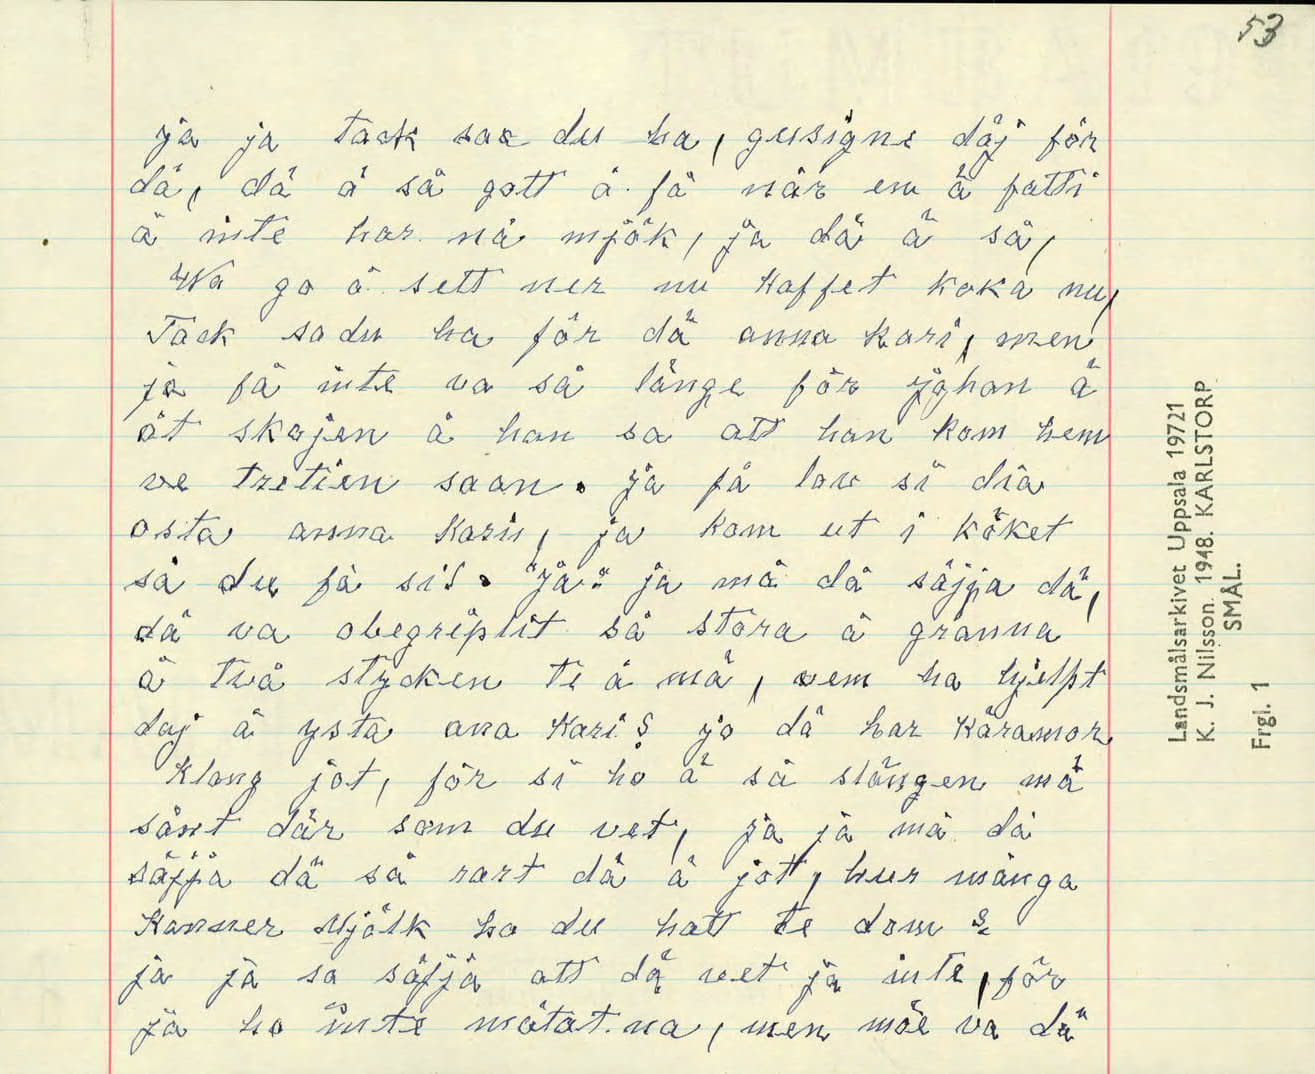 53
ja ja tack saa du ha, gusigne däj för
dä, dä ä så gott å få när en ä fatti
å inte har nå mjök, ja dä ä så,
Na go å sett ner nu kaffet koka nu,
Tack sadu ha för dä anna kari, men
ja få inte va så länge för johan ä
åt skojen å han sa att han kom hem
ve tretien saan. ja få lov si dia
osta anna Karin, ja kom ut i köket
så du få si!. "ja" ja må då säjja dä,
dä va obegriplit så stora å granna
å två stycken te å mä, vem ha hjelpt
daj å ysta ana Kari? jo dä har Käramor
Klang jot, för si ho ä så slängen mä
sånt där som du vet, ja ja må då
säjja dä så rart dä ä jot, hur många
Kanner Mjölk ha du hatt te dom ?
ja ja sa säjja att dä vet ja inte, för
ja ha inte mätat na, men möe va dä
Landsmålsarkivet Uppsala 19721
K. J. Nilsson. 1948. KARLSTORP
SMÅL.
Frgl. 1